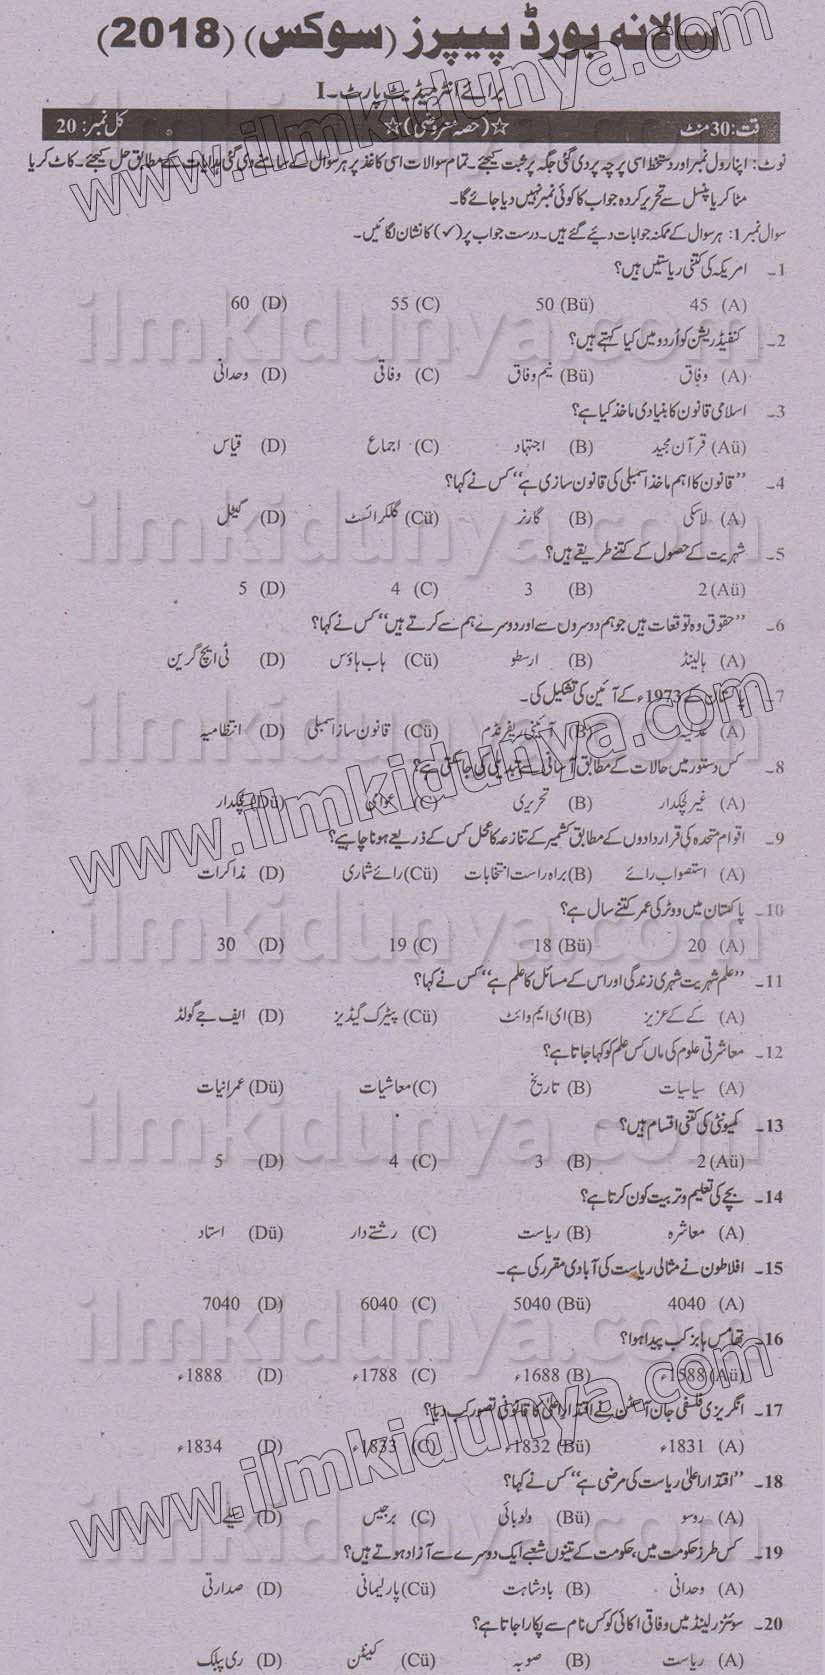 سالانہ بورڈ پیپرز (سوکس) (2018)
برائے انٹرمیڈیٹ پارٹ-I
قت: 30 منٹ ☆(حصہ معروضی)☆ کل نمبر: 20
نوٹ: اپنا رول نمبر اور دستخط اسی پرچہ پر دی گئی جگہ پر ثبت کیجئے۔ تمام سوالات اسی کاغذ پر ہر سوال کے سامنے دی گئی ہدایات کے مطابق حل کیجئے۔ کاٹ کر یا
مٹا کر یا پنسل سے تحریر کردہ جواب کا کوئی نمبر نہیں دیا جائے گا۔
سوال نمبر 1: ہر سوال کے ممکنہ جوابات دیئے گئے ہیں۔ درست جواب پر (✓) کا نشان لگائیں۔
1۔ امریکہ کی کتنی ریاستیں ہیں؟
(A) 45 (Bü) 50 (C) 55 (D) 60
2۔ کنفیڈریشن کو اُردو میں کیا کہتے ہیں؟
(A) وفاق (Bü) نیم وفاق (C) وفاقی (D) وحدانی
3۔ اسلامی قانون کا بنیادی ماخذ کیا ہے؟
(Aü) قرآن مجید (B) اجتہاد (C) اجماع (D) قیاس
4۔ ‘‘قانون کا اہم ماخذ اسمبلی کی قانون سازی ہے’’ کس نے کہا؟
(A) لاسکی (B) گارنر (Cü) گلکرائسٹ (D) گیٹل
5۔ شہریت کے حصول کے کتنے طریقے ہیں؟
(Aü) 2 (B) 3 (C) 4 (D) 5
6۔ ‘‘حقوق وہ توقعات ہیں جو ہم دوسروں سے اور دوسرے ہم سے کرتے ہیں’’ کس نے کہا؟
(A) ہالینڈ (B) ارسطو (Cü) ہاب ہاؤس (D) ٹی ایچ گرین
7۔ پاکستان کے 1973ء کے آئین کی تشکیل کی۔
(A) (B) آئینی ریفرنڈم (Cü) قانون ساز اسمبلی (D) انتظامیہ
8۔ کس دستور میں حالات کے مطابق آسانی سے تبدیلی کی جا سکتی ہے؟
(A) غیر لچکدار (B) تحریری (C) عوامی (Dü) لچکدار
9۔ اقوام متحدہ کی قراردادوں کے مطابق کشمیر کے تنازعہ کا حل کس کے ذریعے ہونا چاہیے؟
(A) استصواب رائے (B) براہ راست انتخابات (Cü) رائے شماری (D) مذاکرات
10۔ پاکستان میں ووٹر کی عمر کتنے سال ہے؟
(A) 20 (Bü) 18 (C) 19 (D) 30
11۔ ‘‘علم شہریت شہری زندگی اور اس کے مسائل کا علم ہے’’ کس نے کہا؟
(A) کے کے عزیز (B) ای ایم وائٹ (Cü) پیٹرک گیڈیز (D) ایف جے گولڈ
12۔ معاشرتی علوم کی ماں کس علم کو کہا جاتا ہے؟
(A) سیاسیات (B) تاریخ (C) معاشیات (Dü) عمرانیات
13۔ کمیونٹی کی کتنی اقسام ہیں؟
(Aü) 2 (B) 3 (C) 4 (D) 5
14۔ بچے کی تعلیم و تربیت کون کرتا ہے؟
(A) معاشرہ (B) ریاست (C) رشتے دار (Dü) استاد
15۔ افلاطون نے مثالی ریاست کی آبادی مقرر کی ہے۔
(A) 4040 (Bü) 5040 (C) 6040 (D) 7040
16۔ تھامس ہابز کب پیدا ہوا؟
(Aü) 1588ء (B) 1688ء (C) 1788ء (D) 1888ء
17۔ انگریزی فلسفی جان آسٹن نے اقتدار اعلیٰ کا قانونی تصور کب دیا؟
(A) 1831ء (Bü) 1832ء (C) 1833ء (D) 1834ء
18۔ ‘‘اقتدار اعلیٰ ریاست کی مرضی ہے’’ کس نے کہا؟
(A) روسو (Bü) ولوبائی (C) برجیس (D)
19۔ کس طرز حکومت میں، حکومت کے تینوں شعبے ایک دوسرے سے آزاد ہوتے ہیں؟
(A) وحدانی (B) بادشاہت (Cü) پارلیمانی (D) صدارتی
20۔ سوئٹزرلینڈ میں وفاقی اکائی کو کس نام سے پکارا جاتا ہے؟
(A) ریاست (B) صوبہ (Cü) کینٹن (D) ری پبلک
www.ilmkidunya.com
ilmkidunya.com